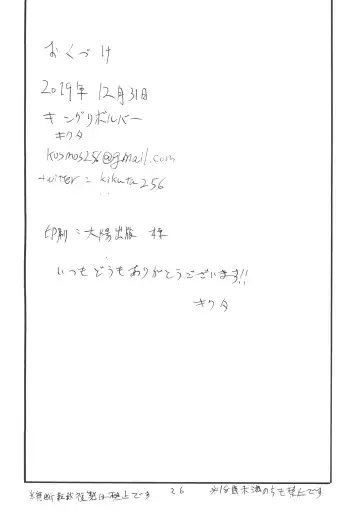 おくづけ
2019年 12月31日
キングリボルバー
キクタ
kosmos256@gmail.com
twitter = kikuta256
印刷 : 大陽出版 様
いつもどうもありがとうございます!!
キクタ
※無断転載複製は禁止です
26
※18歳未満のかた禁止です